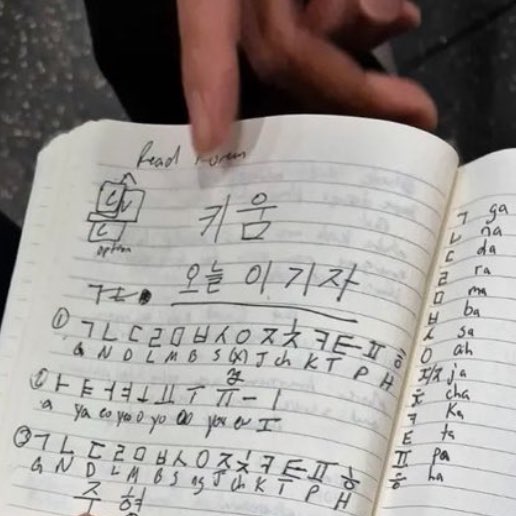 Read Korean
C V
C
option
키움
오늘 이기자
① ㄱ ㄴ ㄷ ㄹ ㅁ ㅂ ㅅ ㅇ ㅈ ㅊ ㅋ ㅌ ㅍ ㅎ
G N D L M B S (x) J ch K T P H
② ㅏ ㅑ ㅓ ㅕ ㅗ ㅛ ㅜ ㅠ ㅡ ㅣ
a ya eo yeo o yo oo you eu I
③ ㄱ ㄴ ㄷ ㄹ ㅁ ㅂ ㅅ ㅇ ㅈ ㅊ ㅋ ㅌ ㅍ ㅎ
G N D L M B S ng J ch K T P H
ㄱ ga
ㄴ na
ㄷ da
ㄹ ra
ㅁ ma
ㅂ ba
ㅅ sa
ㅇ ah
ㅈ/ㅈ ja
ㅊ cha
ㅋ ka
ㅌ ta
ㅍ pa
ㅎ ha